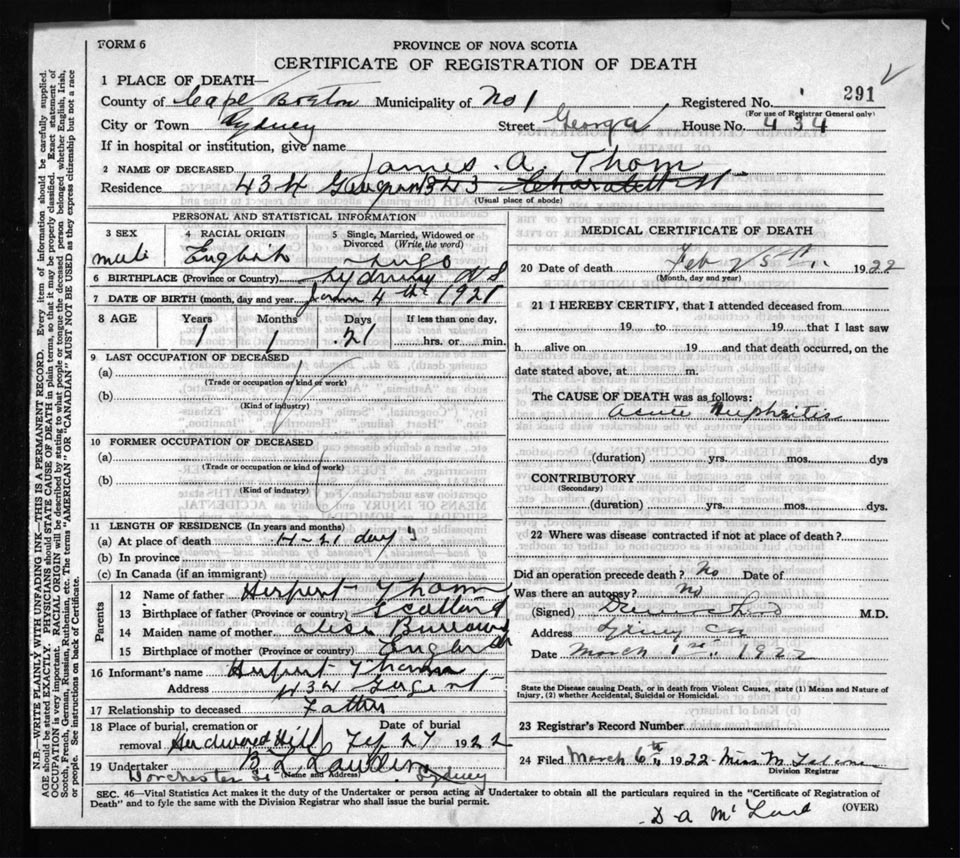 FORM 6
PROVINCE OF NOVA SCOTIA
CERTIFICATE OF REGISTRATION OF DEATH
291
1 PLACE OF DEATH—
County of Cape Breton Municipality of No 1 Registered No.
(For use of Registrar General only)
City or Town Sydney Street George House No. 434
If in hospital or institution, give name
2 NAME OF DECEASED James A. Thom
Residence 434
(Usual place of abode)
PERSONAL AND STATISTICAL INFORMATION
3 SEX 4 RACIAL ORIGIN 5 Single, Married, Widowed or Divorced (Write the word)
male English
6 BIRTHPLACE (Province or Country) Sydney N S
7 DATE OF BIRTH (month, day and year) 4th 1921
8 AGE Years Months Days If less than one day,
1 1 21 hrs. or min.
9 LAST OCCUPATION OF DECEASED
(a)
(Trade or occupation or kind of work)
(b)
(Kind of industry)
10 FORMER OCCUPATION OF DECEASED
(a)
(Trade or occupation or kind of work)
(b)
(Kind of industry)
11 LENGTH OF RESIDENCE (In years and months)
(a) At place of death days
(b) In province
(c) In Canada (if an immigrant)
Parents
12 Name of father Herbert Thom
13 Birthplace of father (Province or country) Scotland
14 Maiden name of mother
15 Birthplace of mother (Province or country) England
16 Informant's name Herbert Thom
Address 434
17 Relationship to deceased Father
18 Place of burial, cremation or removal Hardwood Hill Date of burial Feb 27 1922
19 Undertaker
(Name and Address)
Dorchester St Sydney
MEDICAL CERTIFICATE OF DEATH
20 Date of death Feb 25th 1922
(Month, day and year)
21 I HEREBY CERTIFY, that I attended deceased from
19 to 19 that I last saw
h alive on 19 and that death occurred, on the
date stated above, at m.
The CAUSE OF DEATH was as follows:
Acute Nephritis
(duration) yrs. mos. dys
CONTRIBUTORY
(Secondary)
(duration) yrs. mos. dys.
22 Where was disease contracted if not at place of death?
Did an operation precede death? No Date of
Was there an autopsy? No
(Signed) M.D.
Address Sydney
Date March 1st 1922
State the Disease causing Death, or in death from Violent Causes, state (1) Means and Nature of Injury, (2) whether Accidental, Suicidal or Homicidal.
23 Registrar's Record Number
24 Filed March 6th 1922 Miss M
Division Registrar
SEC. 46—Vital Statistics Act makes it the duty of the Undertaker or person acting as Undertaker to obtain all the particulars required in the "Certificate of Registration of
Death" and to fyle the same with the Division Registrar who shall issue the burial permit. (OVER)
D A
N.B.—WRITE PLAINLY WITH UNFADING INK—THIS IS A PERMANENT RECORD. Every item of information should be carefully supplied.
AGE should be stated EXACTLY. PHYSICIANS should STATE CAUSE OF DEATH in plain terms, so that it may be properly classified. Exact statement of
OCCUPATION is very important. RACIAL ORIGIN will be described by stating to what people or tongue the deceased person belonged whether English, Irish,
Scotch, French, German, Russian, Ruthenian, etc. The terms "AMERICAN" OR "CANADIAN" MUST NOT BE USED as they express citizenship but not a race
or people. See instructions on back of Certificate.